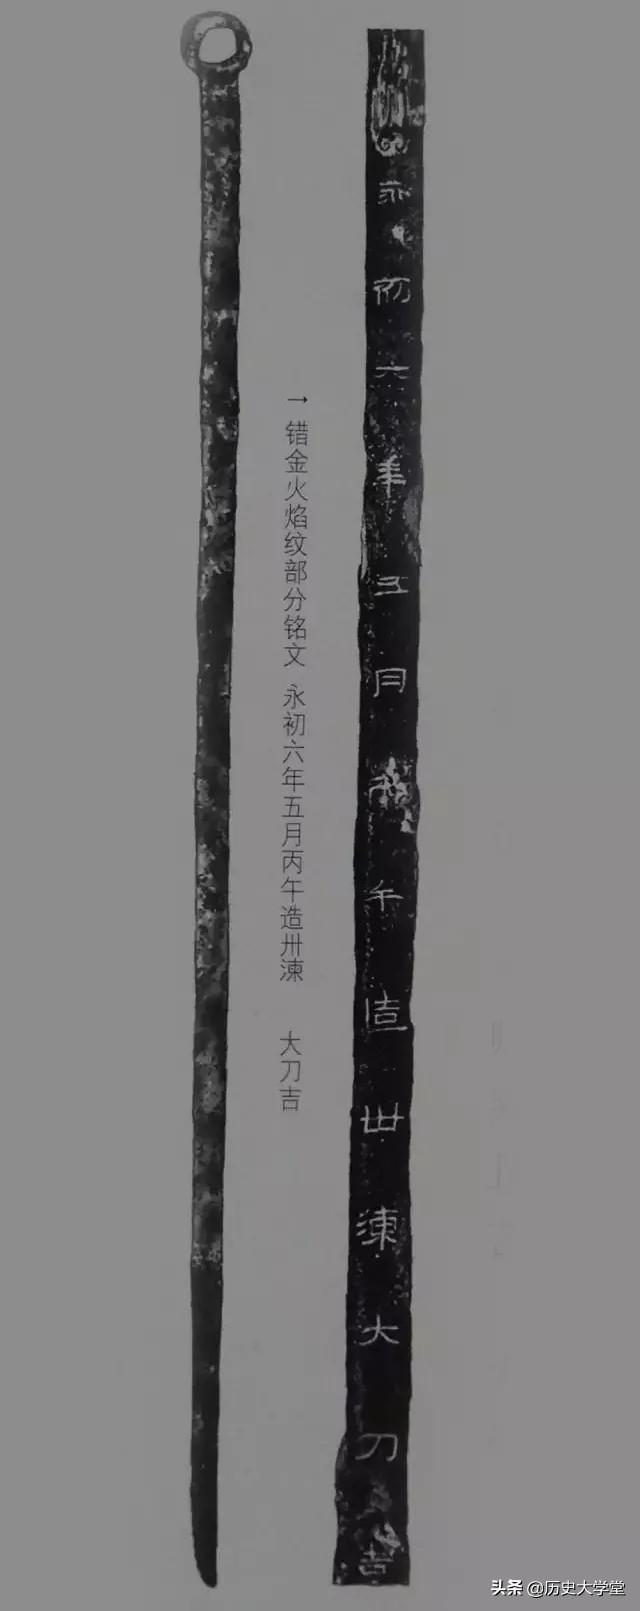 永初六年五月丙午造卅湅大刀吉
→ 错金火焰纹部分铭文 永初六年五月丙午造卅湅 大刀吉
头条 @历史大学堂